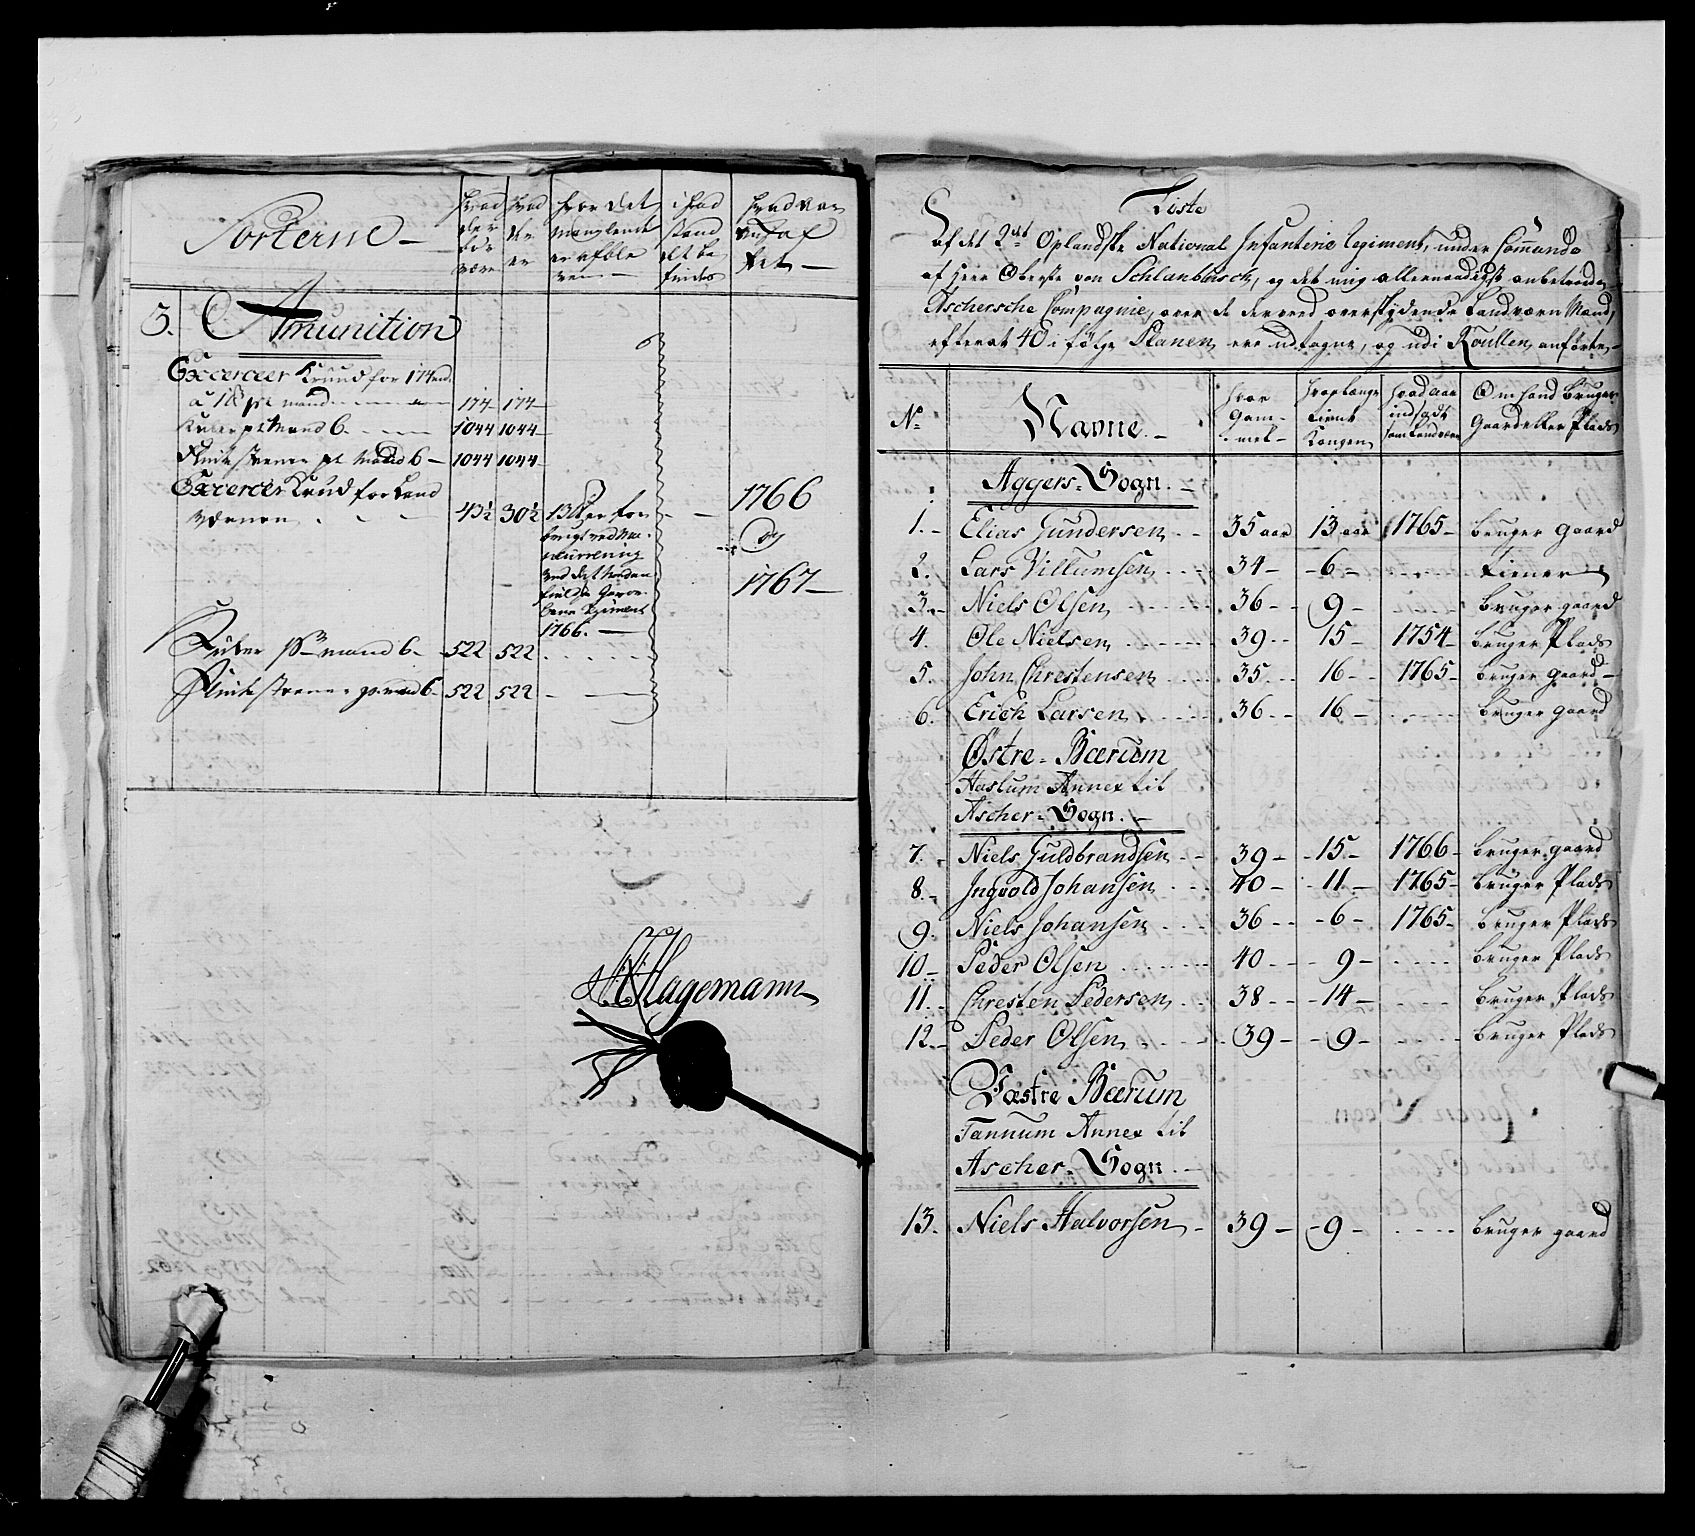 Sorterne –
Hvad der bør være
Hvad der er
Hvor det manglende er afble ven
i hvad stand det be findes
Hvad aar anskaf fet –
3. Amunition
Excerceer Krud for 174 md.
a 1 ℔ pr mand 174 174
Kuler pr Mand 6. 1044 1044
Flintesteene pr Mand 6 – 1044 1044
Excerceer Krud for Land
Værnen 43½ 30½ 13 ℔ er for
brugt ved
ved det
1766.
1766
og
1767 –
Kuler pr mand 6 – 522 522
Flintesteene pr mand 6 – 522 522
Hagemann
Liste
af det 2det Oplandske National Infanterie Regiment, under Commando
af Herr Oberste von Schlanbusch, og det mig allernaadigst anbetroede
Aschersche Compagnie, over de derved overskydende Landværn Mand,
efterat 40 i følge Planen ere udtagne, og udi Roullen anførte. –
No
Navne. –
Hvor Gammel
Hvor længe tient Kongen
Hvad aar indsadt som Landværn
Om hand bruger Gaard eller Plads
Aggers-Sogn. –
1. Elias Gundersen 35 aar 13 aar 1765 – bruger gaard
2. Lars Villumsen 34 – 6 – tiener
3. Niels Olsen 36 – 9 – bruger gaard
4. Ole Nielsen 39 – 15 – 1754 – bruger Plads
5. John Christensen 35 – 16 – 1765 – bruger gaard –
6. Erich Larsen 36 – 16 – bruger gaard
Østre-Bærum
Haslum Annex til
Ascher-Sogn. –
7. Niels Guldbrandsen 39 – 15 – 1766 – bruger gaard
8. Ingvold Johansen 40 – 11 – 1765 – bruger Plads
9. Niels Johansen 36 – 6 – 1765 – bruger Plads
10. Peder Olsen 40 – 9 – bruger Plads
11. Christen Pedersen 38 – 14 – bruger Plads
12. Peder Olsen 39 – 9 – bruger Plads
Væstre Bærum
Tannum Annex til
Ascher-Sogn. –
13. Niels Halvorsen 39 – 9 – bruger gaard